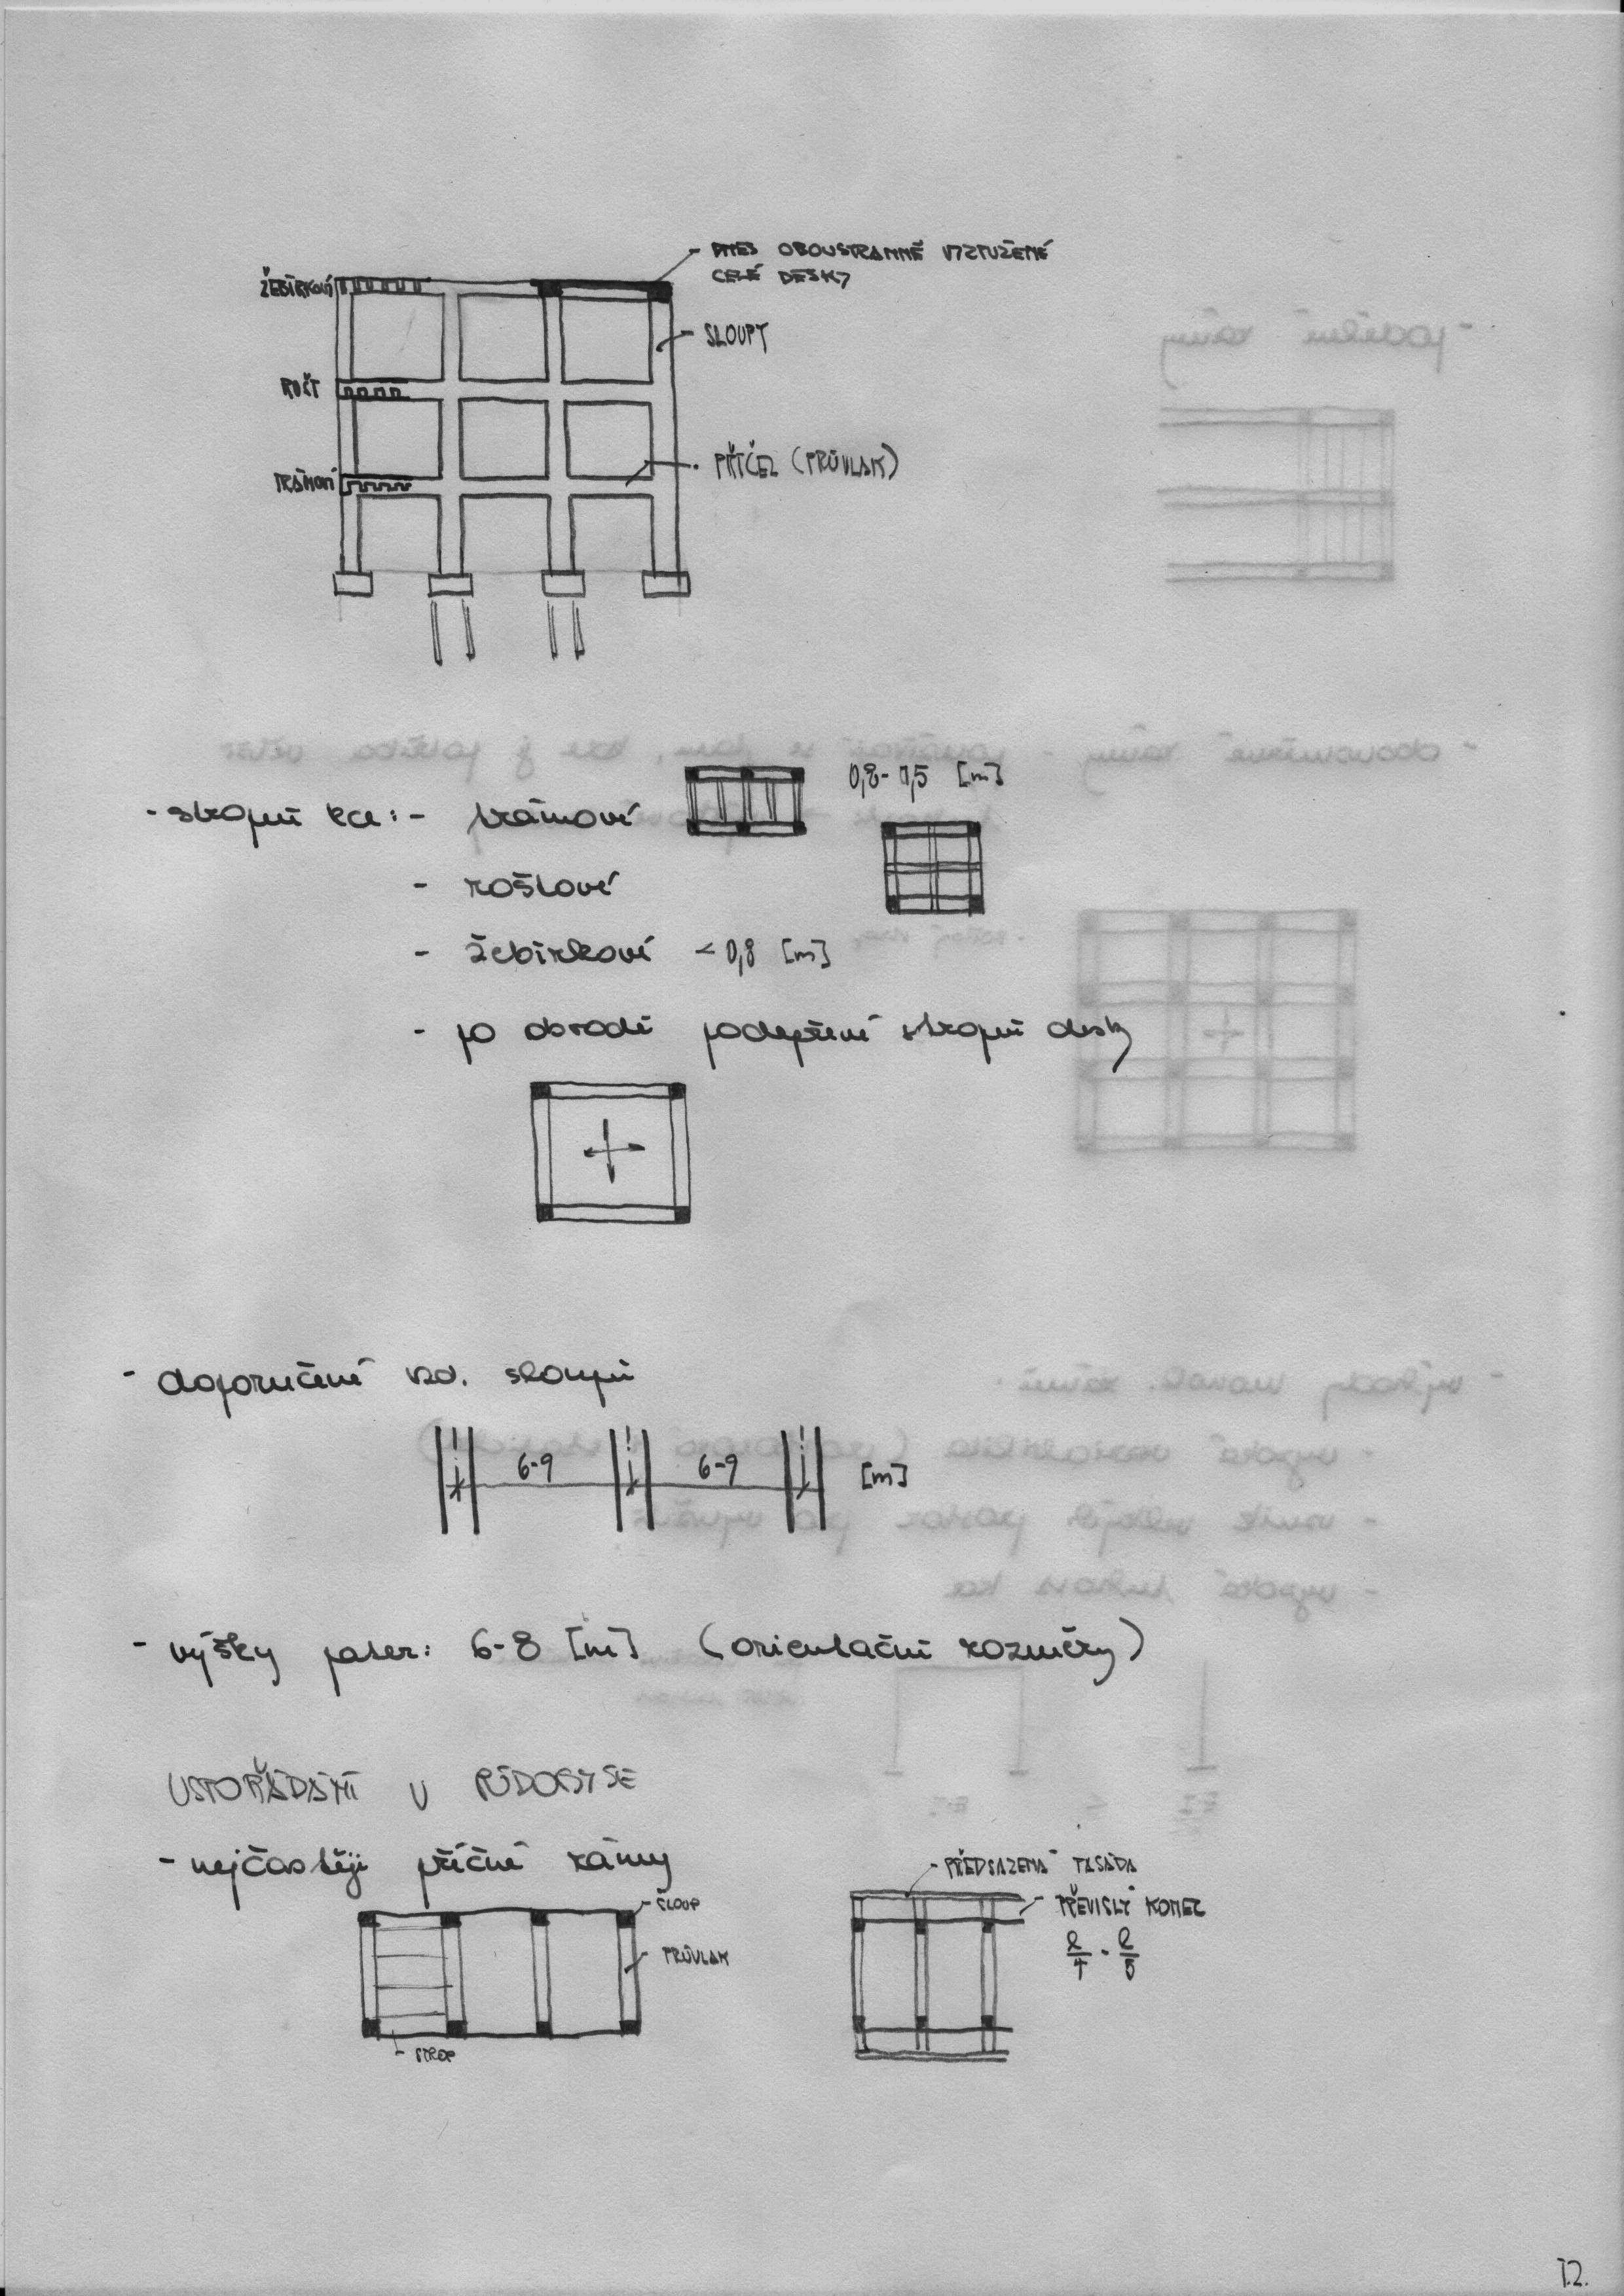 - DNES OBOUSTRANNĚ VYZTUŽENÉ
CELÉ DESKY
ŽEBÍRKOVÝ
- SLOUPY
ROŠT
- PŘÍČEL (PRŮVLAK)
TRÁMOVÝ
- stropní kce: - trámové 0,8 - 1,5 [m]
- roštové
- žebírkové < 0,8 [m]
- po obvodě podepřené stropní desky
- doporučené vzd. sloupů
6-9 6-9 [m]
- výšky pater: 6-8 [m] (orientační rozměry)
USPOŘÁDÁNÍ V PŮDORYSE
- nejčastěji příčné rámy
- SLOUP
- PRŮVLAK
- STROP
- PŘEDSAZENÁ FASÁDA
- PŘEVISLÝ KONEC
l/4 - l/5
7.2.